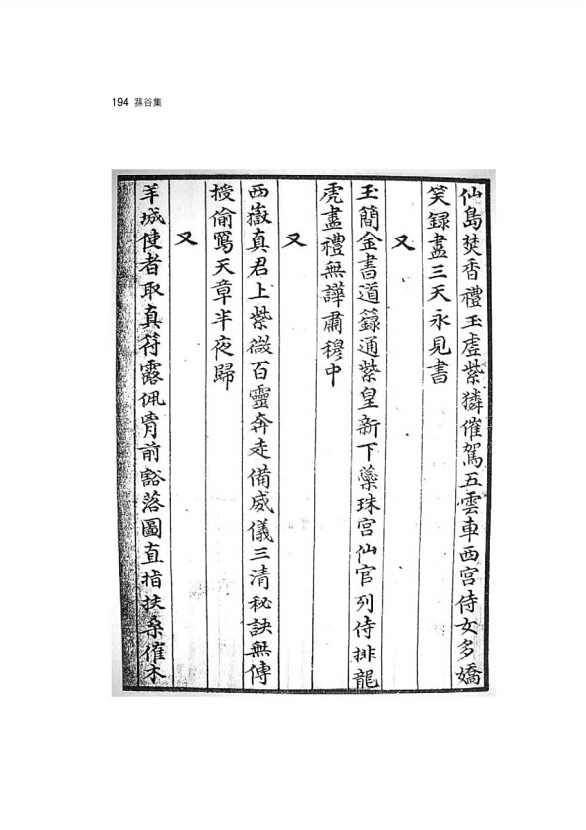 194 蓀谷集
仙島焚香禮玉虛紫獜催駕五雲車西宮侍女多嬌
笑録盡三天永見書
又
玉簡金書道籙通紫皇新下蘂珠宮仙官列侍排龍
虎盡禮無譁肅穆中
又
西嶽真君上紫微百靈奔走備威儀三清秘訣無傳
授偷寫天章半夜歸
又
羊城使者取真符露佩胷前豁落圖直指扶桒催木